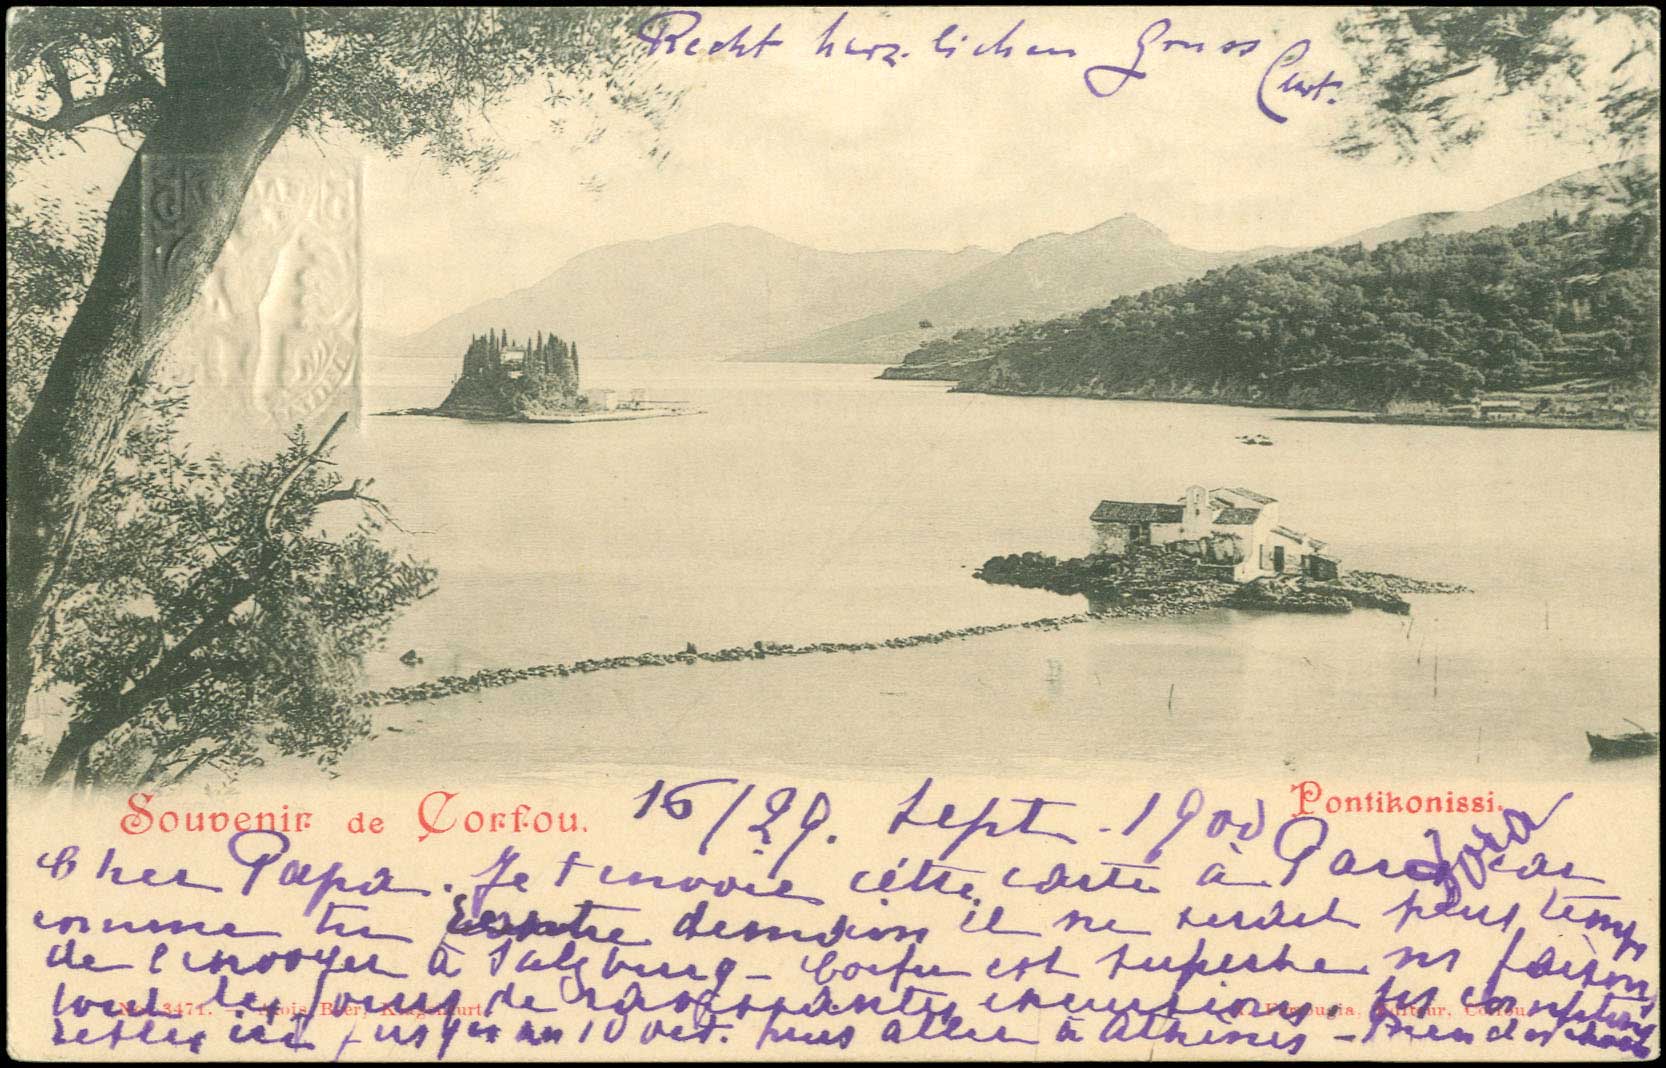 Recht herzlichen Gruss
Curt.
Souvenir de Corfou.
Pontikonissi.
16/29. Sept. 1900
Cher Papa. Je t'envoie cette carte à Paris car
comme tu rentre demain il ne serait plus temps
de l'envoyer à Salzburg – Corfu est superbe ns faisons
tous les jours de ravissantes excursions ns comptons
rester ici jusqu'au 10 oct. puis aller à Athènes –
Dora
No. 3471. – Alois Beer, Klagenfurt.
Éditeur, Corfou.